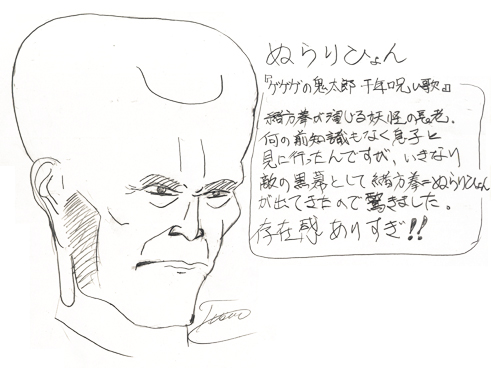 ぬらりひょん
『ゲゲゲの鬼太郎 千年呪い歌』
緒方拳が演じる妖怪の長老。
何の前知識もなく息子と
見に行ったんですが、いきなり
敵の黒幕として緒方拳=ぬらりひょん
が出てきたので驚きました。
存在感ありすぎ!!